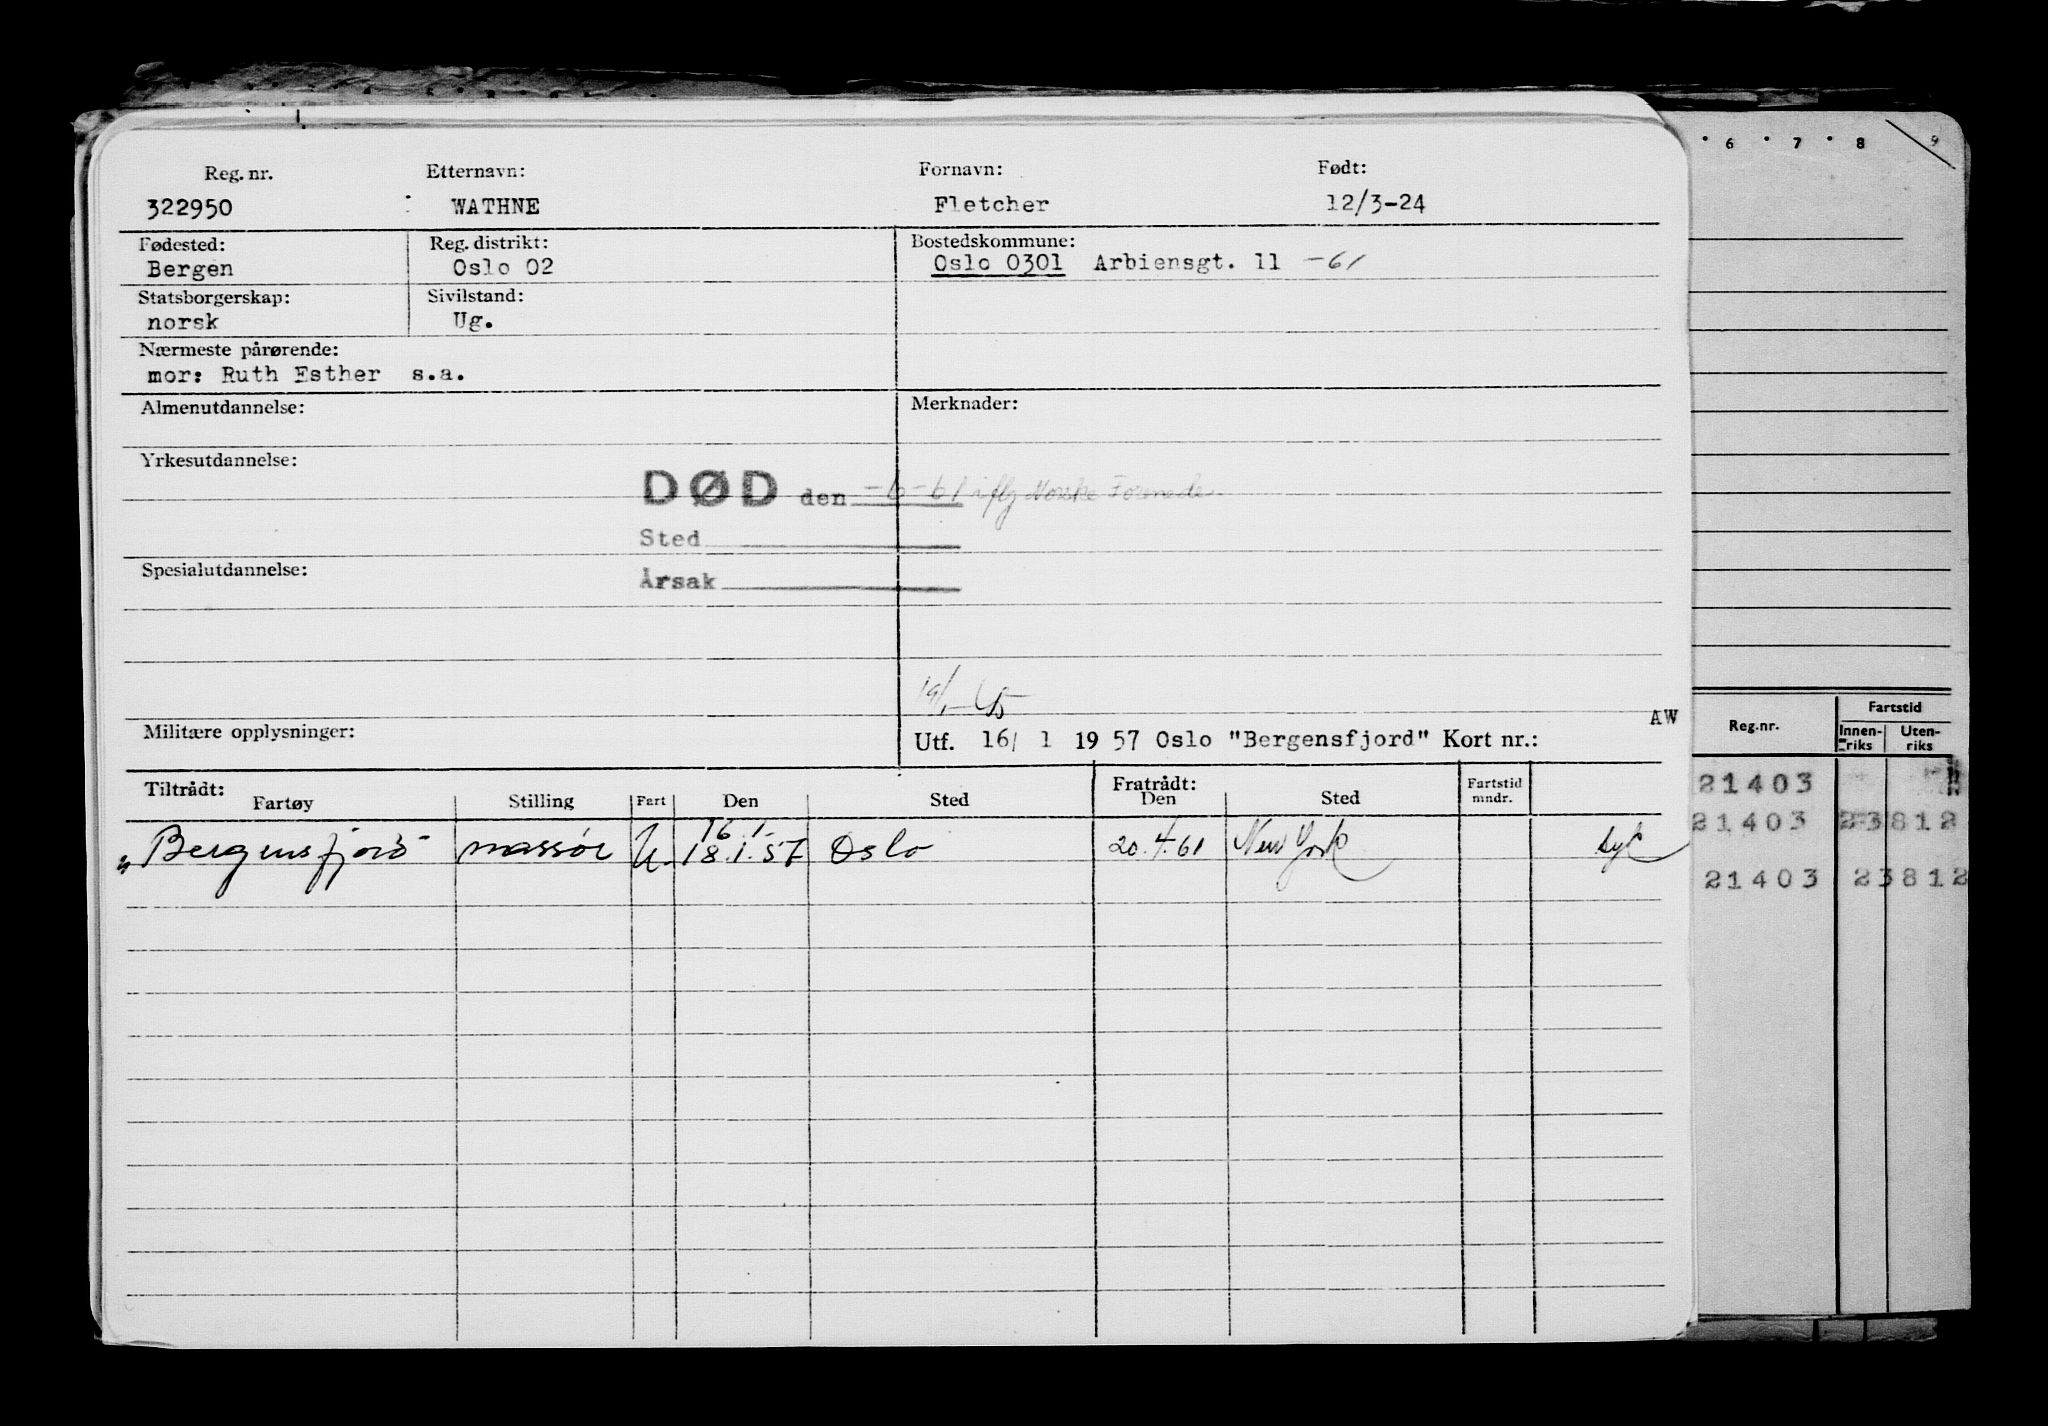 6 7 8 9
Reg. nr. Etternavn: Fornavn: Født:
322950 WATHNE Fletcher 12/3-24
Fødested: Reg. distrikt: Bostedskommune:
Bergen Oslo 02 Oslo 0301 Arbiensgt. 11 -61
Statsborgerskap: Sivilstand:
norsk Ug.
Nærmeste pårørende:
mor: Ruth Esther s.a.
Almenutdannelse: Merknader:
Yrkesutdannelse:
DØD den -6-61 iflg Norske
Sted
Spesialutdannelse:
Årsak
Militære opplysninger:
AW
Utf. 16/ 1 19 57 Oslo "Bergensfjord" Kort nr.:
Tiltrådt: Fratrådt:
Fartøy Stilling Fart Den Sted Den Sted Fartstid mndr.
16 1
"Bergensfjord" massør U. 18.1.57 Oslo 20.4.61 New York syk
Reg.nr. Fartstid
Innen-riks Uten-riks
21403
21403 23812
21403 23812